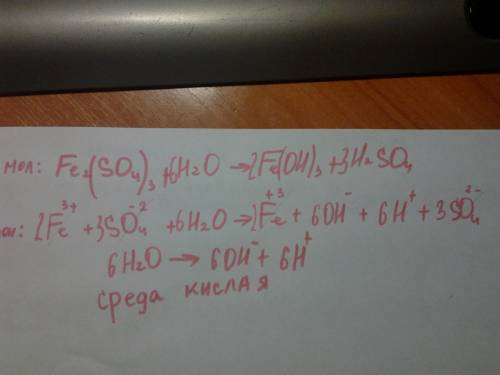 мол: Fe₂(SO₄)₃ + 6H₂O → 2Fe(OH)₃ + 3H₂SO₄
2Fe³⁺ + 3SO₄⁻² + 6H₂O → 2Fe⁺³ + 6OH⁻ + 6H⁺ + 3SO₄²⁻
6H₂O → 6OH⁻ + 6H⁺
среда кислая